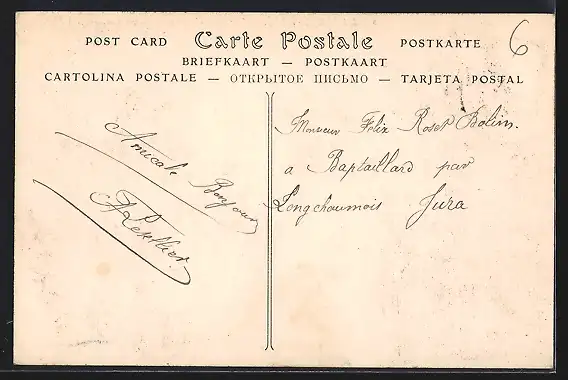 POST CARD Carte Postale POSTKARTE
BRIEFKAART — POSTKAART
CARTOLINA POSTALE — ОТКРЫТОЕ ПИСЬМО — TARJETA POSTAL
6
Amicale Bonjour
Monsieur Felix Roset Bolin.
a Baptaillard par
Longchaumois Jura